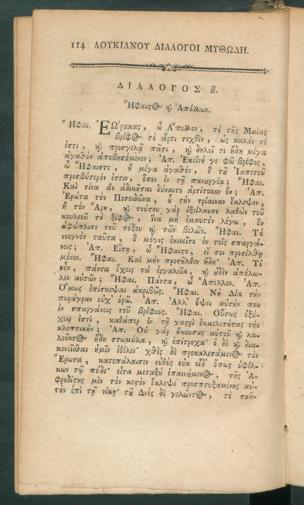 114 ΛΟΥΚΙΑΝΟΥ ΔΙΑΛΟΓΟΙ ΜΥΘΩΔΗ.
ΔΙΑΛΟΓΟΣ β.
Ἥφαιστος καὶ Ἀπόλλων.
Ἥφαι. Ἑώρακας, ὦ Ἄπολλον, τὸ τῆς Μαίας
βρέφος τὸ ἄρτι τεχθὲν, ὡς καλόν τέ
ἐστι, καὶ προσγελᾷ πᾶσι, καὶ δηλοῖ τι ἤδη μέγα
ἀγαθὸν ἀποβησόμενον; Ἀπ. Ἐκεῖνό γε φῶ βρέφος,
ὦ Ἥφαιστε, ἢ μέγα ἀγαθὸν, ὃ τοῦ Ἰαπετοῦ
πρεσβύτερόν ἐστιν, ὅσον ἐν τῇ πανουργίᾳ; Ἥφαι.
Καὶ τίνα ἂν ἀδικῆσαι δύναιτο ἀρτίτοκον ὄν; Ἀπ.
Ἐρώτα τὸν Ποσειδῶνα, οὗ τὴν τρίαιναν ἔκλεψεν,
ἢ τὸν Ἄρη, καὶ τούτου γὰρ ἐξείλκυσε λαθὼν τοῦ
κουλεοῦ τὸ ξίφος, ἵνα μὴ ἐμαυτὸν λέγω, ὃν
ἀφώπλισε τοῦ τόξου καὶ τῶν βελῶν. Ἥφαι. Τὸ
νεογνὸν ταῦτα, ὃ μόγις ἐκινεῖτο ἐν τοῖς σπαργά-
νοις; Ἀπ. Εἴσῃ, ὦ Ἥφαιστε, εἴ σοι προσέλθῃ
μόνον. Ἥφαι. Καὶ μὴν προσῆλθεν ἤδη. Ἀπ. Τί
οὖν, πάντα ἔχεις τὰ ἐργαλεῖα, καὶ οὐδὲν ἀπόλω-
λεν αὐτῶν; Ἥφαι. Πάντα, ὦ Ἄπολλον. Ἀπ.
Ὅμως ἐπίσκεψαι ἀκριβῶς. Ἥφαι. Νὴ Δία τὴν
πυράγραν οὐχ' ὁρῶ. Ἀπ. Ἀλλ' ὄψει αὐτήν που
ἐν σπαργάνοις τοῦ βρέφους. Ἥφαι. Οὕτως ὀξύ-
χειρ ἐστὶ, καθάπερ ἐν τῇ γαστρὶ ἐκμελετήσας τὴν
κλεπτικήν; Ἀπ. Οὐ γὰρ ἤκουσας αὐτοῦ καὶ λα-
λοῦντος ἤδη στωμύλα, καὶ ἐπίτροχα· ὁ δὲ καὶ δια-
κονεῖσθαι ἡμῖν ἐθέλει· χθὲς δὲ προκαλεσάμενος τὸν
Ἔρωτα, κατεπάλαισεν εὐθὺς οὐκ οἶδ' ὅπως ὑφέλ-
κων τὼ πόδε· εἶτα μεταξὺ ἐπαινούμενος, τῆς Ἀ-
φροδίτης μὲν τὸν κεστὸν ἔκλεψε προσπτυξαμένης αὐ-
τὸν ἐπὶ τῇ νίκῃ· τοῦ Διὸς δὲ γελῶντος, τὸ σκῆ-